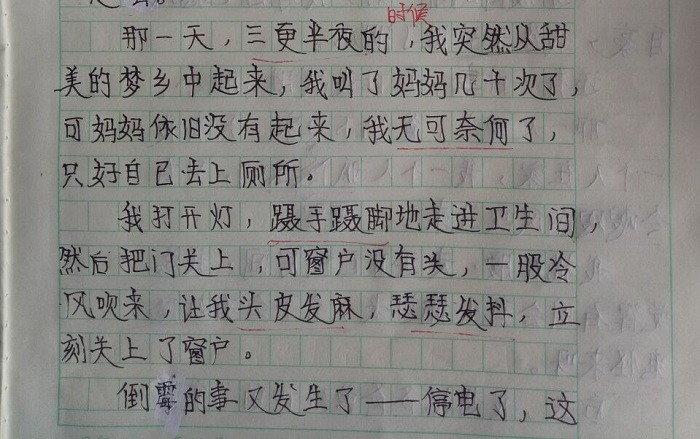 时候
那一天，三更半夜的，我突然从甜
美的梦乡中起来，我叫了妈妈几十次了，
可妈妈依旧没有起来，我无可奈何了，
只好自已去上厕所。
我打开灯，蹑手蹑脚地走进卫生间，
然后把门关上，可窗户没有关，一股冷
风吹来，让我头皮发麻，瑟瑟发抖，立
刻关上了窗户。
倒霉的事又发生了——停电了，这